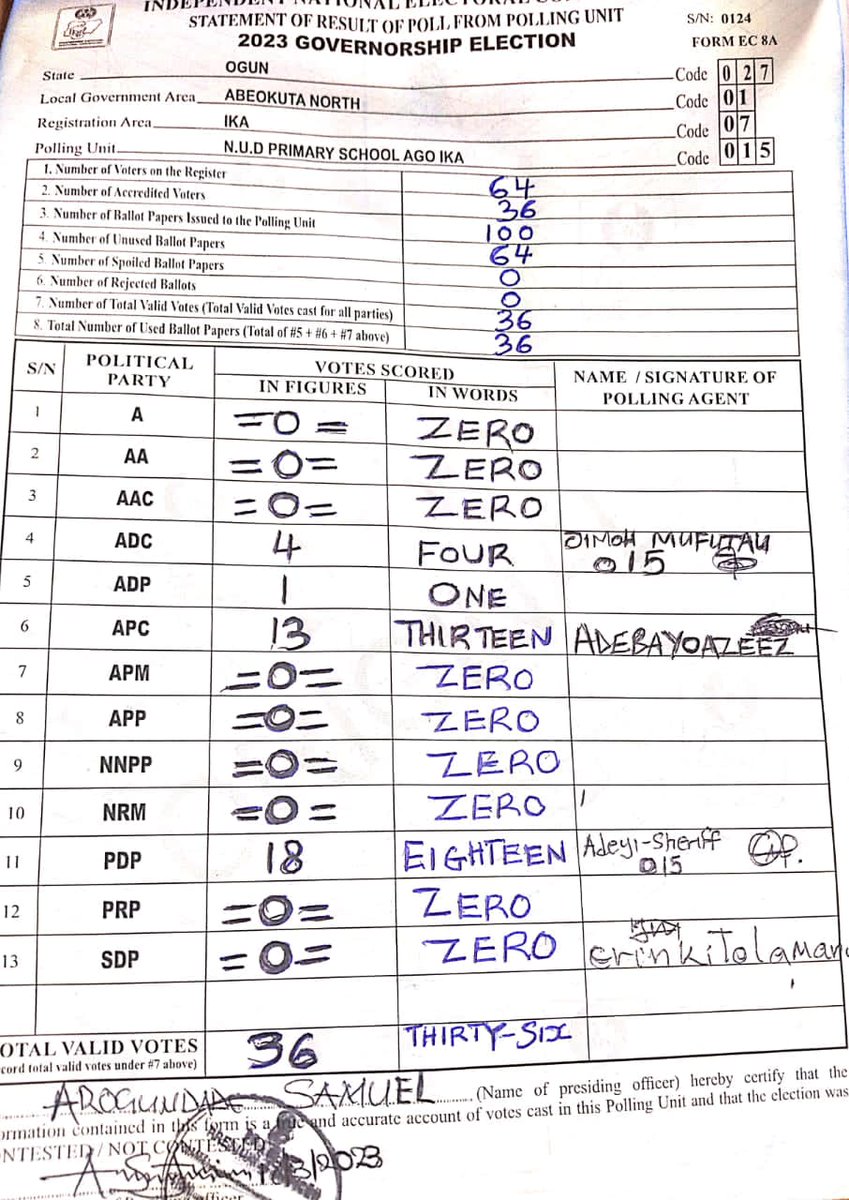 INDEPENDENT NATIONAL ELECTORAL
STATEMENT OF RESULT OF POLL FROM POLLING UNIT
S/N: 0124
2023 GOVERNORSHIP ELECTION
FORM EC 8A
State OGUN Code 0 2 7
Local Government Area ABEOKUTA NORTH Code 0 1
Registration Area IKA Code 0 7
Polling Unit N.U.D PRIMARY SCHOOL AGO IKA Code 0 1 5
1. Number of Voters on the Register 64
2. Number of Accredited Voters 36
3. Number of Ballot Papers Issued to the Polling Unit 100
4. Number of Unused Ballot Papers 64
5. Number of Spoiled Ballot Papers 0
6. Number of Rejected Ballots 0
7. Number of Total Valid Votes (Total Valid Votes cast for all parties) 36
8. Total Number of Used Ballot Papers (Total of #5 + #6 + #7 above) 36
S/N POLITICAL PARTY VOTES SCORED NAME / SIGNATURE OF POLLING AGENT
IN FIGURES IN WORDS
1 A =0= ZERO
2 AA =0= ZERO
3 AAC =0= ZERO
4 ADC 4 FOUR JIMOH MUFUTAU
015
5 ADP 1 ONE
6 APC 13 THIRTEEN ADEBAYO AZEEZ
7 APM =0= ZERO
8 APP =0= ZERO
9 NNPP =0= ZERO
10 NRM =0= ZERO
11 PDP 18 EIGHTEEN Adeyi-Sheriff
015
12 PRP =0= ZERO
13 SDP =0= ZERO
OTAL VALID VOTES 36 THIRTY-SIX
cord total valid votes under #7 above)
AROGUNDADE SAMUEL (Name of presiding officer) hereby certify that the
ormation contained in this form is a true and accurate account of votes cast in this Polling Unit and that the election was
NTESTED / NOT CONTESTED
/3/2023
officer